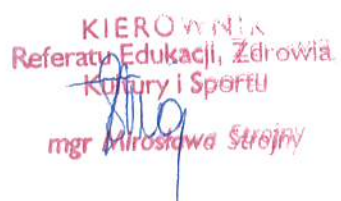 KIEROWNIK
Referatu Edukacji, Zdrowia
Kultury i Sportu
mgr Mirosława Strojny